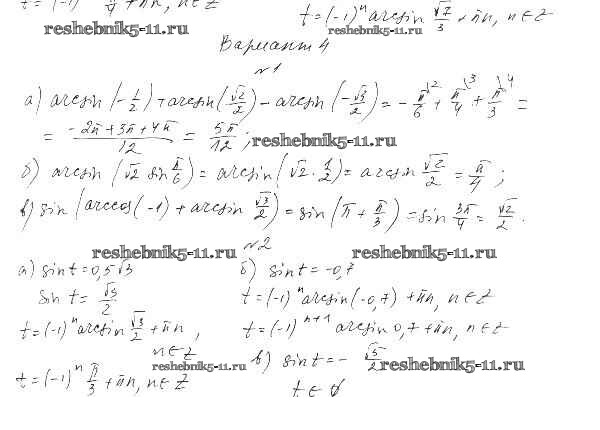 t = (-1)ⁿ π/4 + πn, n∈Z
t = (-1)ⁿ arcsin √7/3 + πn, n∈Z
reshebnik5-11.ru reshebnik5-11.ru
Вариант 4
№1
а) arcsin(-1/2) + arcsin(√2/2) - arcsin(-√3/2) = -π/6 \2 + π/4 \3 + π/3 \4 =
= (-2π + 3π + 4π)/12 = 5π/12; reshebnik5-11.ru
б) arcsin(√2 sin π/6) = arcsin(√2 · 1/2) = arcsin √2/2 = π/4;
в) sin(arccos(-1) + arcsin √3/2) = sin(π + π/3) = sin 3π/4 = √2/2.
№2
reshebnik5-11.ru reshebnik5-11.ru
а) sin t = 0,5√3
sin t = √3/2
t = (-1)ⁿ arcsin √3/2 + πn,
n∈Z
reshebnik5-11.ru
t = (-1)ⁿ π/3 + πn, n∈Z
б) sin t = -0,7
t = (-1)ⁿ arcsin(-0,7) + πn, n∈Z
t = (-1)ⁿ⁺¹ arcsin 0,7 + πn, n∈Z
в) sin t = - √5/2 reshebnik5-11.ru
t ∈ ∅